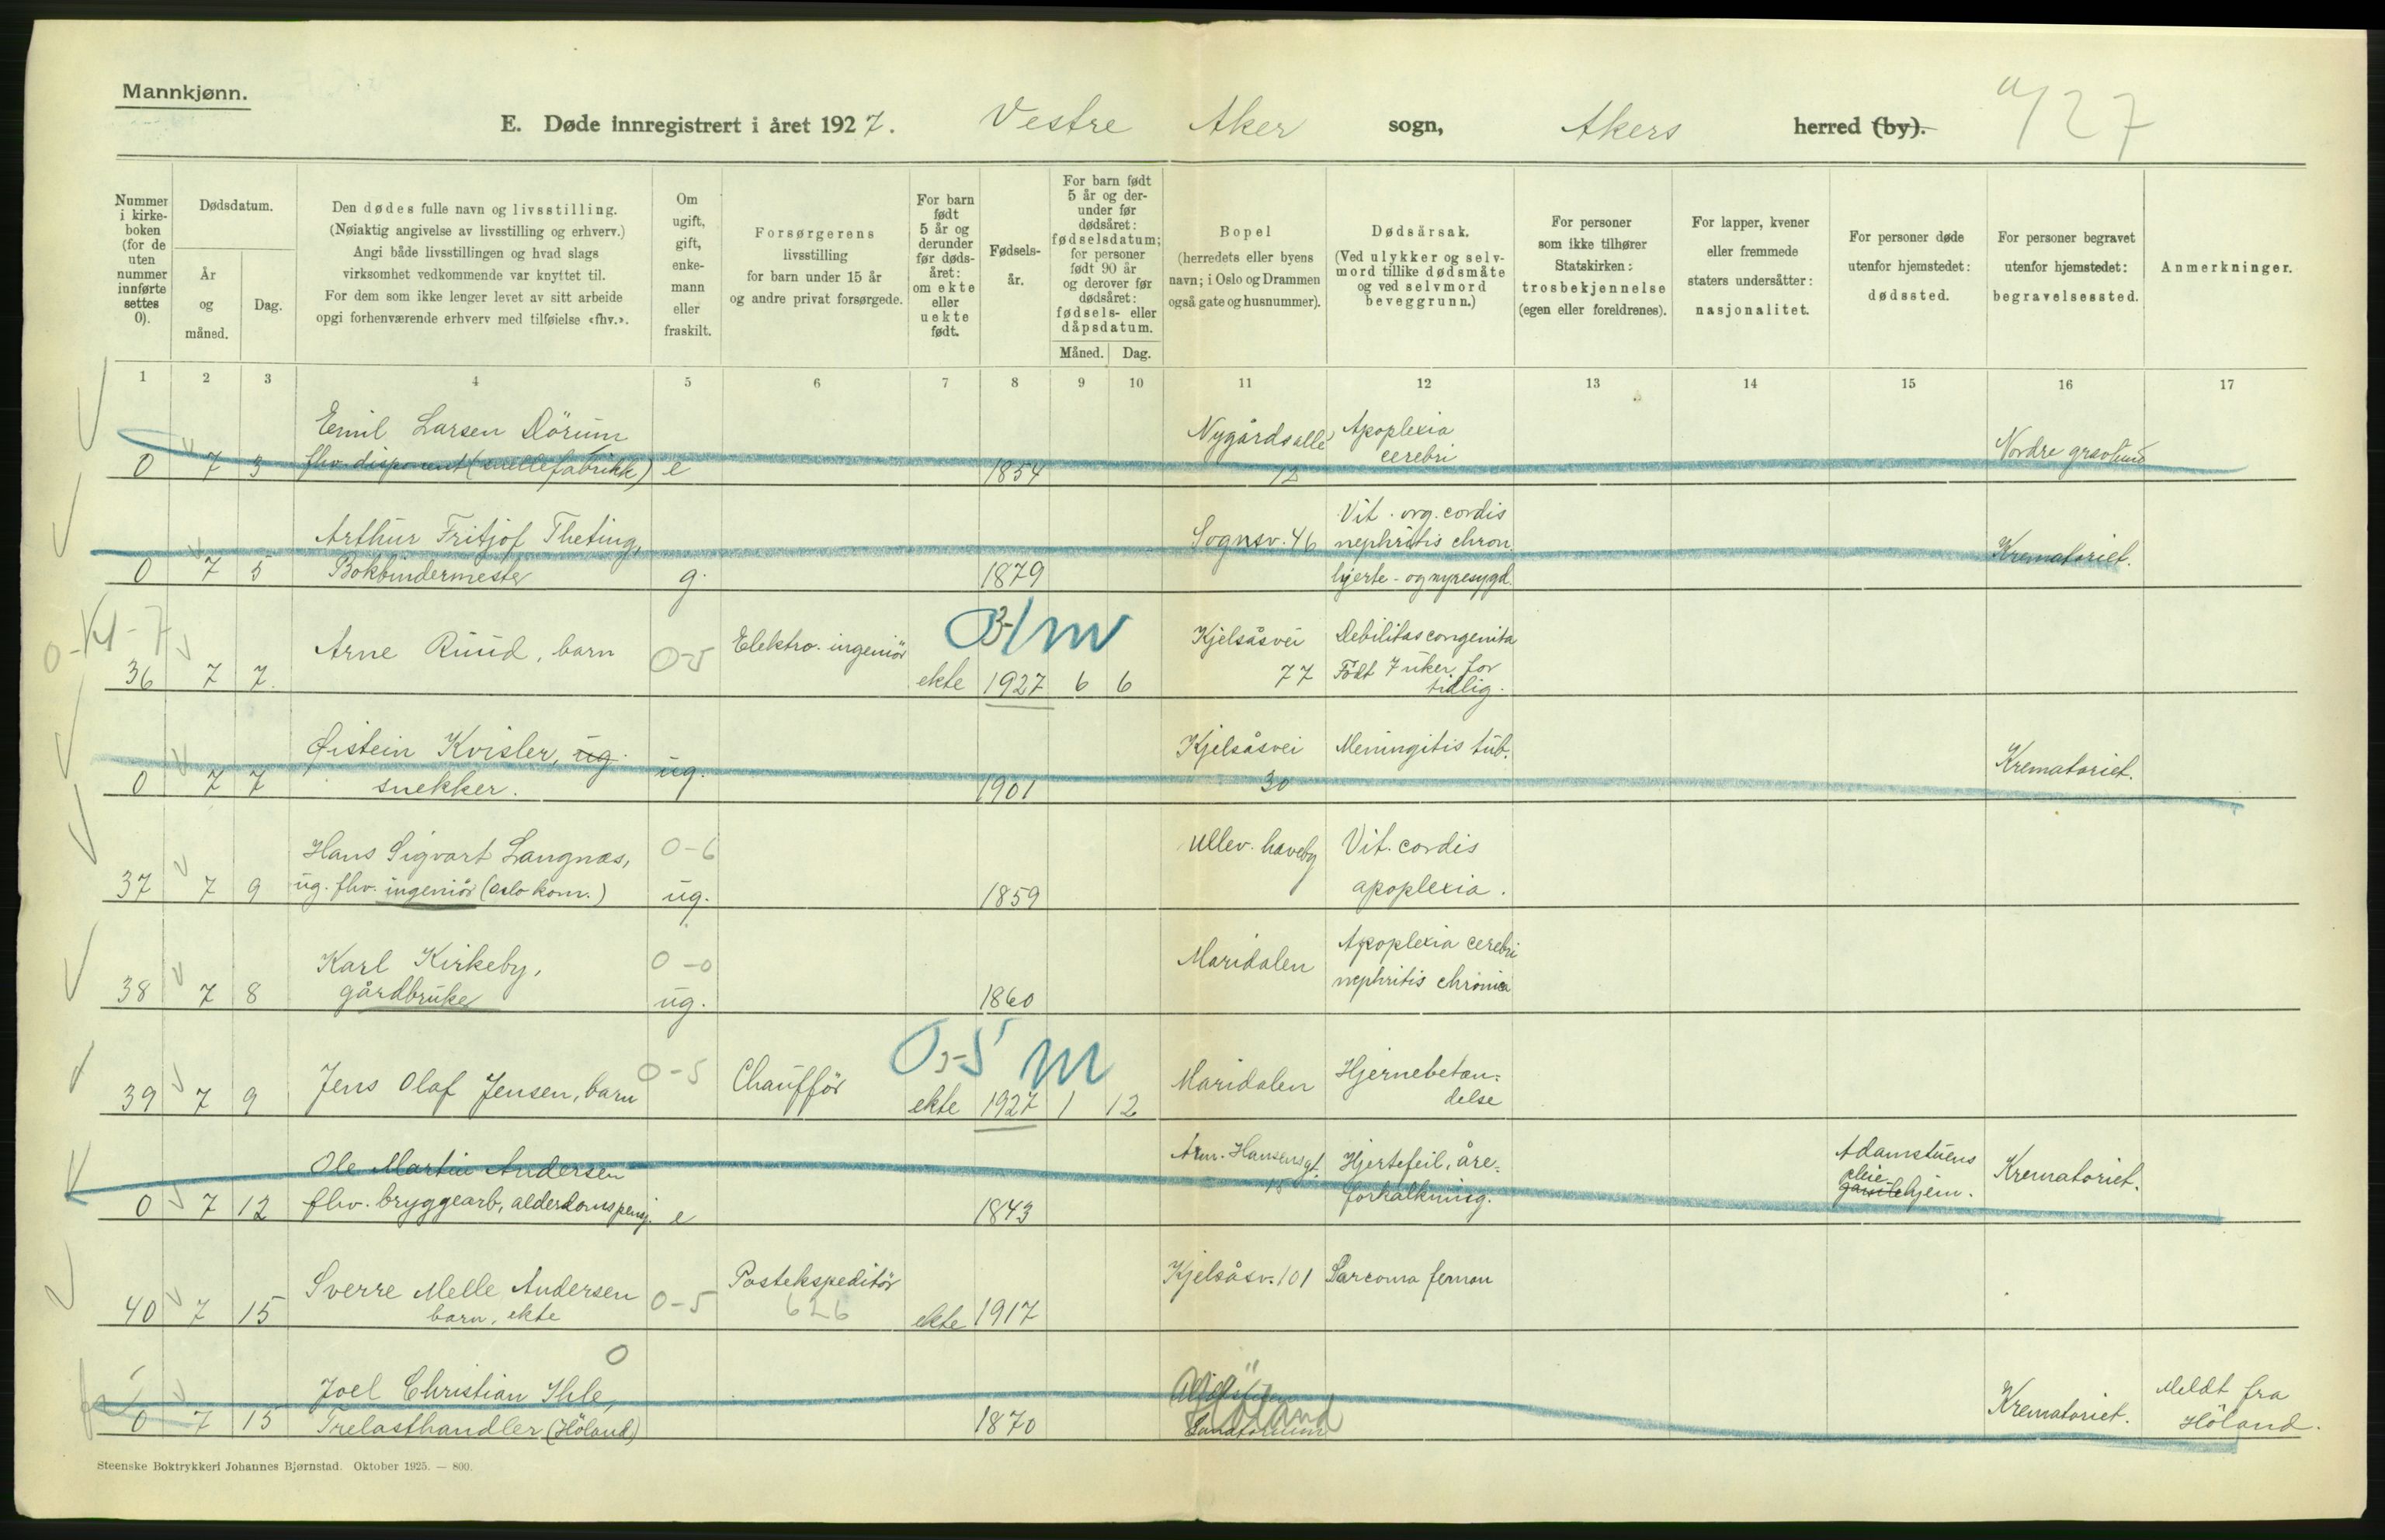 Mannkjønn.
E. Døde innregistrert i året 1927. Vestre Aker sogn, Akers herred (by). 4/27
Nummer i kirkeboken (for de uten nummer innførte settes 0).
Dødsdatum.
År og måned.
Dag.
Den dødes fulle navn og livsstilling.
(Nøiaktig angivelse av livsstilling og erhverv.)
Angi både livsstillingen og hvad slags
virksomhet vedkommende var knyttet til.
For dem som ikke lenger levet av sitt arbeide
opgi forhenværende erhverv med tilføielse «fhv.».
Om ugift, gift, enkemann eller fraskilt.
Forsørgerens
livsstilling
for barn under 15 år
og andre privat forsørgede.
For barn født 5 år og derunder før dødsåret: om ekte eller uekte født.
Fødselsår.
For barn født 5 år og derunder før dødsåret: fødselsdatum; for personer født 90 år og derover før dødsåret: fødsels- eller dåpsdatum.
Måned. Dag.
Bopel
(herredets eller byens
navn; i Oslo og Drammen
også gate og husnummer).
Dødsårsak.
(Ved ulykker og selvmord tillike dødsmåte og ved selvmord beveggrunn.)
For personer
som ikke tilhører
Statskirken:
trosbekjennelse
(egen eller foreldrenes).
For lapper, kvener
eller fremmede
staters undersåtter:
nasjonalitet.
For personer døde
utenfor hjemstedet:
dødssted.
For personer begravet
utenfor hjemstedet:
begravelsessted.
Anmerkninger.
1 2 3 4 5 6 7 8 9 10 11 12 13 14 15 16 17
Emil Larsen Dörum Nygårdsallé Apoplexia
0 7 3 fhv. disponent (muellefabrikk) e 1854 12 cerebri Nordre gravlund
Arthur Fritjof Theting, Sognsv. 46 Vit. org. cordis
nephritis chron. Krematoriet.
0 7 5 Bokbindermester g. 1879 hjerte- og nyresygd.
Arne Ruud, barn 0-5 Elektro. ingeniör Kjelsåsvei Debilitas congenita
36 7 7. ekte 1927 6 6 77 Født 7 uker for
tidlig.
Øistein Kvisler, ug. ug. Kjelsåsvei Meningitis tub.
0 7 7 snekker. 1901 30 Krematoriet.
Hans Sigvart Langnæs, 0-6 Ullev. haveby Vit. cordis
37 7 9 ug. fhv. ingeniör (Oslo kom.) ug. 1859 apoplexia.
Karl Kirkeby, 0-0 Maridalen Apoplexia cerebri
38 7 8 gårdbruker ug. 1860 nephritis chronica
0-5 m
Jens Olaf Jensen, barn 0-5 Chaufför Maridalen Hjernebetæn-
39 7 9 ekte 1927 1 12 delse
Ole Martin Andersen Arm. Hansensgt. Hjertefeil, åre- Adamstuens
15 pleie- Krematoriet.
0 7 12 fhv. bryggearb, alderdomspensj. e 1843 forkalkning. gamlehjem.
Sverre Melle Andersen 0-5 Postekspeditör Kjelsåsv. 101 Sarcoma femon
626
40 7 15 barn, ekte ekte 1917
0
Joel Christian Ihle, Meldt fra
0 7 15 Trelasthandler (Höland) 1870 Höland Sanatorium Krematoriet. Höland.
Steenske Boktrykkeri Johannes Bjørnstad. Oktober 1925. — 800.